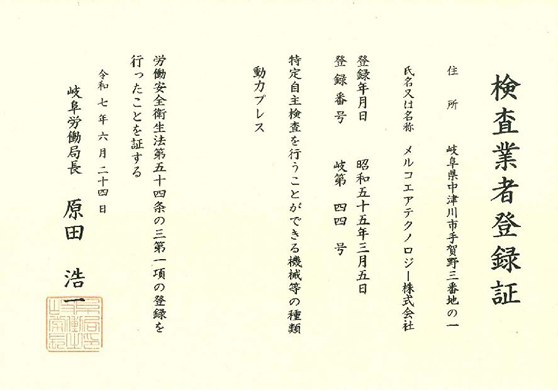 検査業者登録証
住所　岐阜県中津川市手賀野三番地の一
氏名又は名称　メルコエアテクノロジー株式会社
登録年月日　昭和五十五年三月五日
登録番号　岐第　四四　号
特定自主検査を行うことができる機械等の種類
動力プレス
労働安全衛生法第五十四条の三第一項の登録を
行ったことを証する
令和七年六月二十四日
岐阜労働局長　原田　浩一